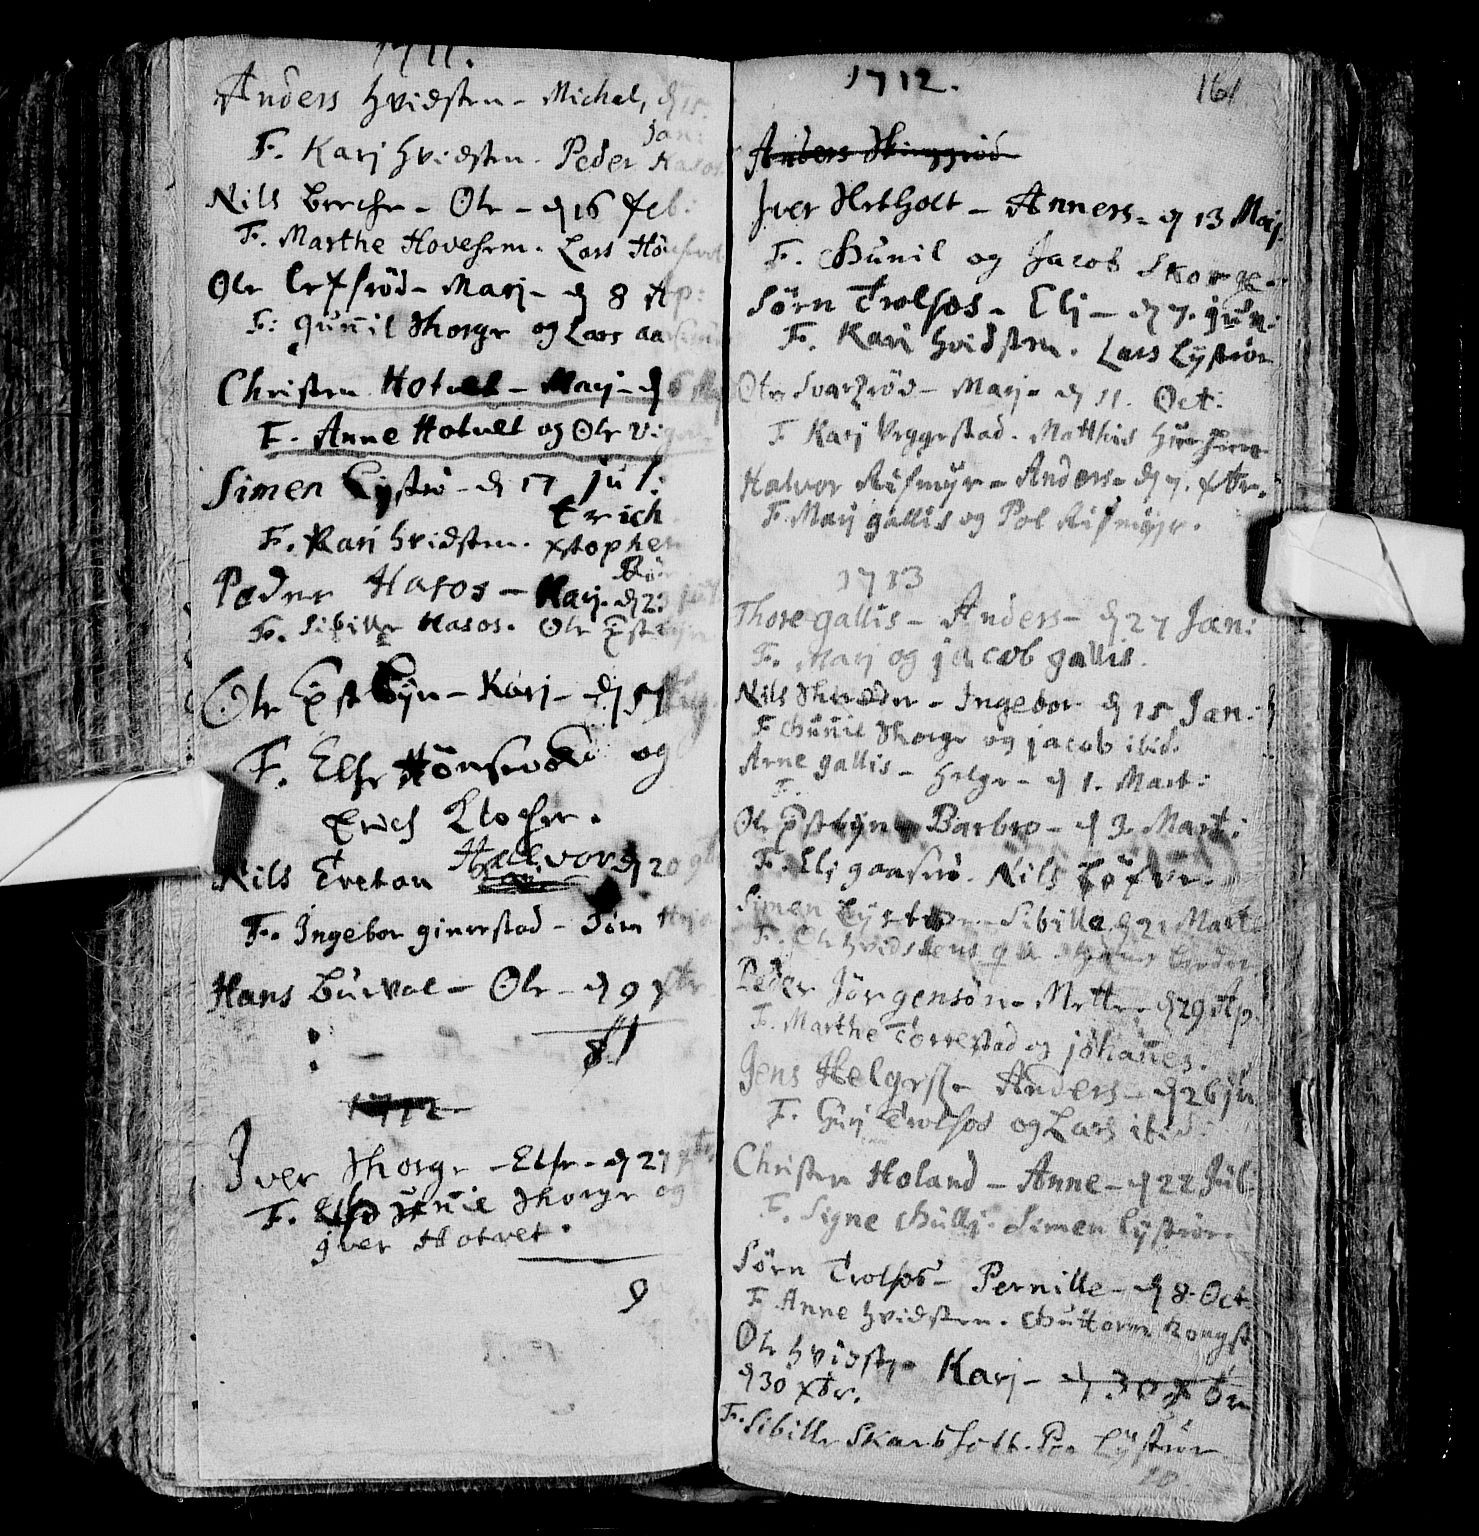 1711.
Anders Hvidsten - Michel, d 15.
Jan:
F. Karj Hvidsten. Peder Hasos
Nils Berche - Ole - d 16 Feb:
F. Marthe Hovehem. Lars
Ole - Marj - d 8 Ap:
F: Gunnil Skorge og Lars
Christen Hotvet - Marj - d 6
F. Anne Hotvet og Ole
Simen Lystrø - d 17 Jul:
Erich
F. Karj Hvidsten. Xstopher
Peder Hasos - Karj - d 2
F. Sibille Hasos. Ole Estbyn
Ole Estbyn - Karj - d
F. Else Hönsevold og
Erich Klocker.
Nils Tveton Hallvor d 20
F. Ingebor ginerstad - Sörn
Hans Burval - Ole - d 9 Xbr
81
1712
Iver Skorge - Else - d 27
F. Gunnil Skorge og
Iver Hotvet.
9
1712.
161
Anders
Iver - Anners - d 13 Maj.
F. Gunil og Jacob Skorge.
Sörn Trolsos - Elj - d 7. Jun:
F. Kari Hvidsten. Lars Lyströr
Ole Svarsröd - Marj - d 11. Oct:
F Karj Veggerstad. Matthis
Halvor Rismyr - Anders - d 7. Xbr.
F. Marj gallis og Pol Rismyr.
1713
Thore gallis - Anders - d 27 Jan:
F. Marj og jacob gallis.
Nils - Ingebor d 15 Jan:
F Gunnil Skorge og jacob ibid.
Arne gallis - Helge - d 1. Mart:
F.
Ole Estbyn Barbro - d 3. Mart:
F. Elj gaasrø. Nils
Simen Lyströr - Sibille. d 21 Marti
F. Ole Hvidstens
Peder Jörgensön - Mette - d 29 Ap.
F. Marthe Torrestad og johannes.
Jens - Anders - d 26 ju
F. Gurj Trolsos og Lars ibid:
Christen Holand - Anne - d 22 Jul
F. Signe Gullj. Simen Lyströr.
Sörn Trolsos - Pernille - d 8. Oct
F Anne Hvidsten. Guttorm
Ole Hvidst. Karj - d 30 Xbr
d 30 Xbr.
F. Sibille Skarsholt. Per Lyströr
10.